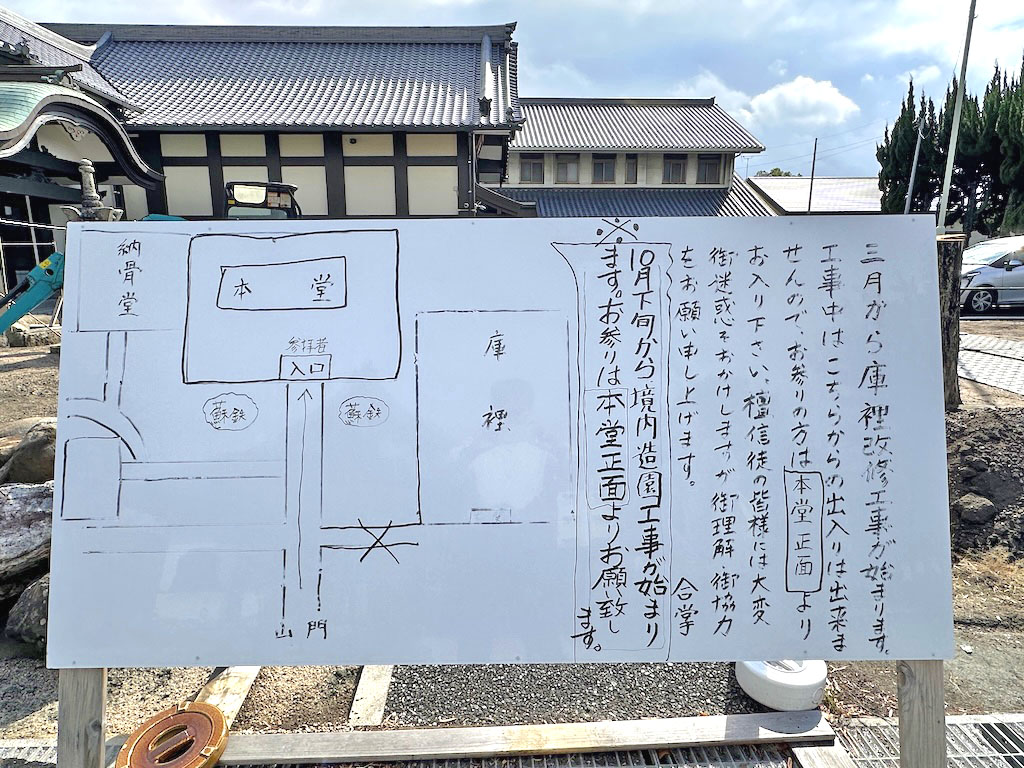 三月から庫裡改修工事が始まります。
工事中はこちらからの出入りは出来ま
せんので、お参りの方は本堂正面より
お入り下さい、檀信徒の皆様には大変
御迷惑をおかけしますが御理解・御協力
をお願い申し上げます。
合掌
※
10月下旬から境内造園工事が始まり
ます。お参りは本堂正面よりお願い致し
ます。
納骨堂
本堂
参拝者
入口
蘇鉄
蘇鉄
庫裡
山門